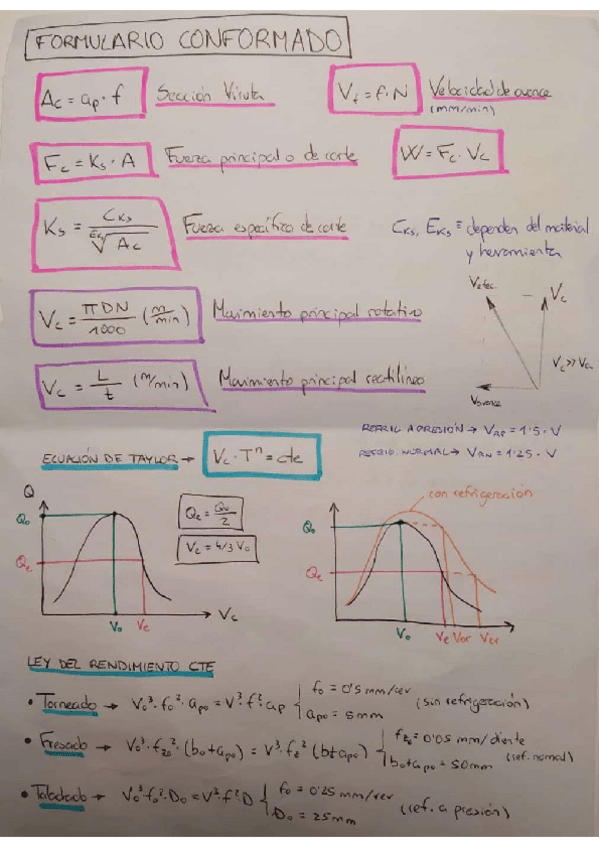 FORMULARIO CONFORMADO
Ac = ap · f Sección Viruta
Vf = f · N Velocidad de avance
(mm/min)
Fc = Ks · A Fuerza principal o de corte
W = Fc · Vc
Ks = CKs / ᴱᴷˢ√Ac Fuerza específica de corte
CKs, EKs ≡ dependen del material
y herramienta
Vc = πDN/1000 (m/min) Movimiento principal rotativo
Vefec.
Vc
Vc >>
Vavance
Vc = L/t (m/min) Movimiento principal rectilíneo
REFRIG A PRESIÓN → VRP = 1'5 · V
NORMAL → VRN = 1'25 · V
ECUACIÓN DE TAYLOR → Vc · Tⁿ = cte
Q
Qo
Qe
Vo Ve
Vc
Qe = Qo/2
Ve = 4/3 Vo
con refrigeración
Qo
Qe
Vo Ve Vor Ver
LEY DEL RENDIMIENTO CTE
• Torneado → Vo³ · fo² · apo = V³ · f² · ap { fo = 0'5 mm/rev
apo = 5mm
(sin refrigeración)
• Fresado → Vo³ · fzo² · (bo+apo) = V³ · fz² (b+ap) { fzo = 0'05 mm/diente
bo+apo = 50mm
(ref. normal)
• Taladrado → Vo³ · fo² · Do = V³ · f² · D { fo = 0'25 mm/rev
Do = 25mm
(ref. a presión)